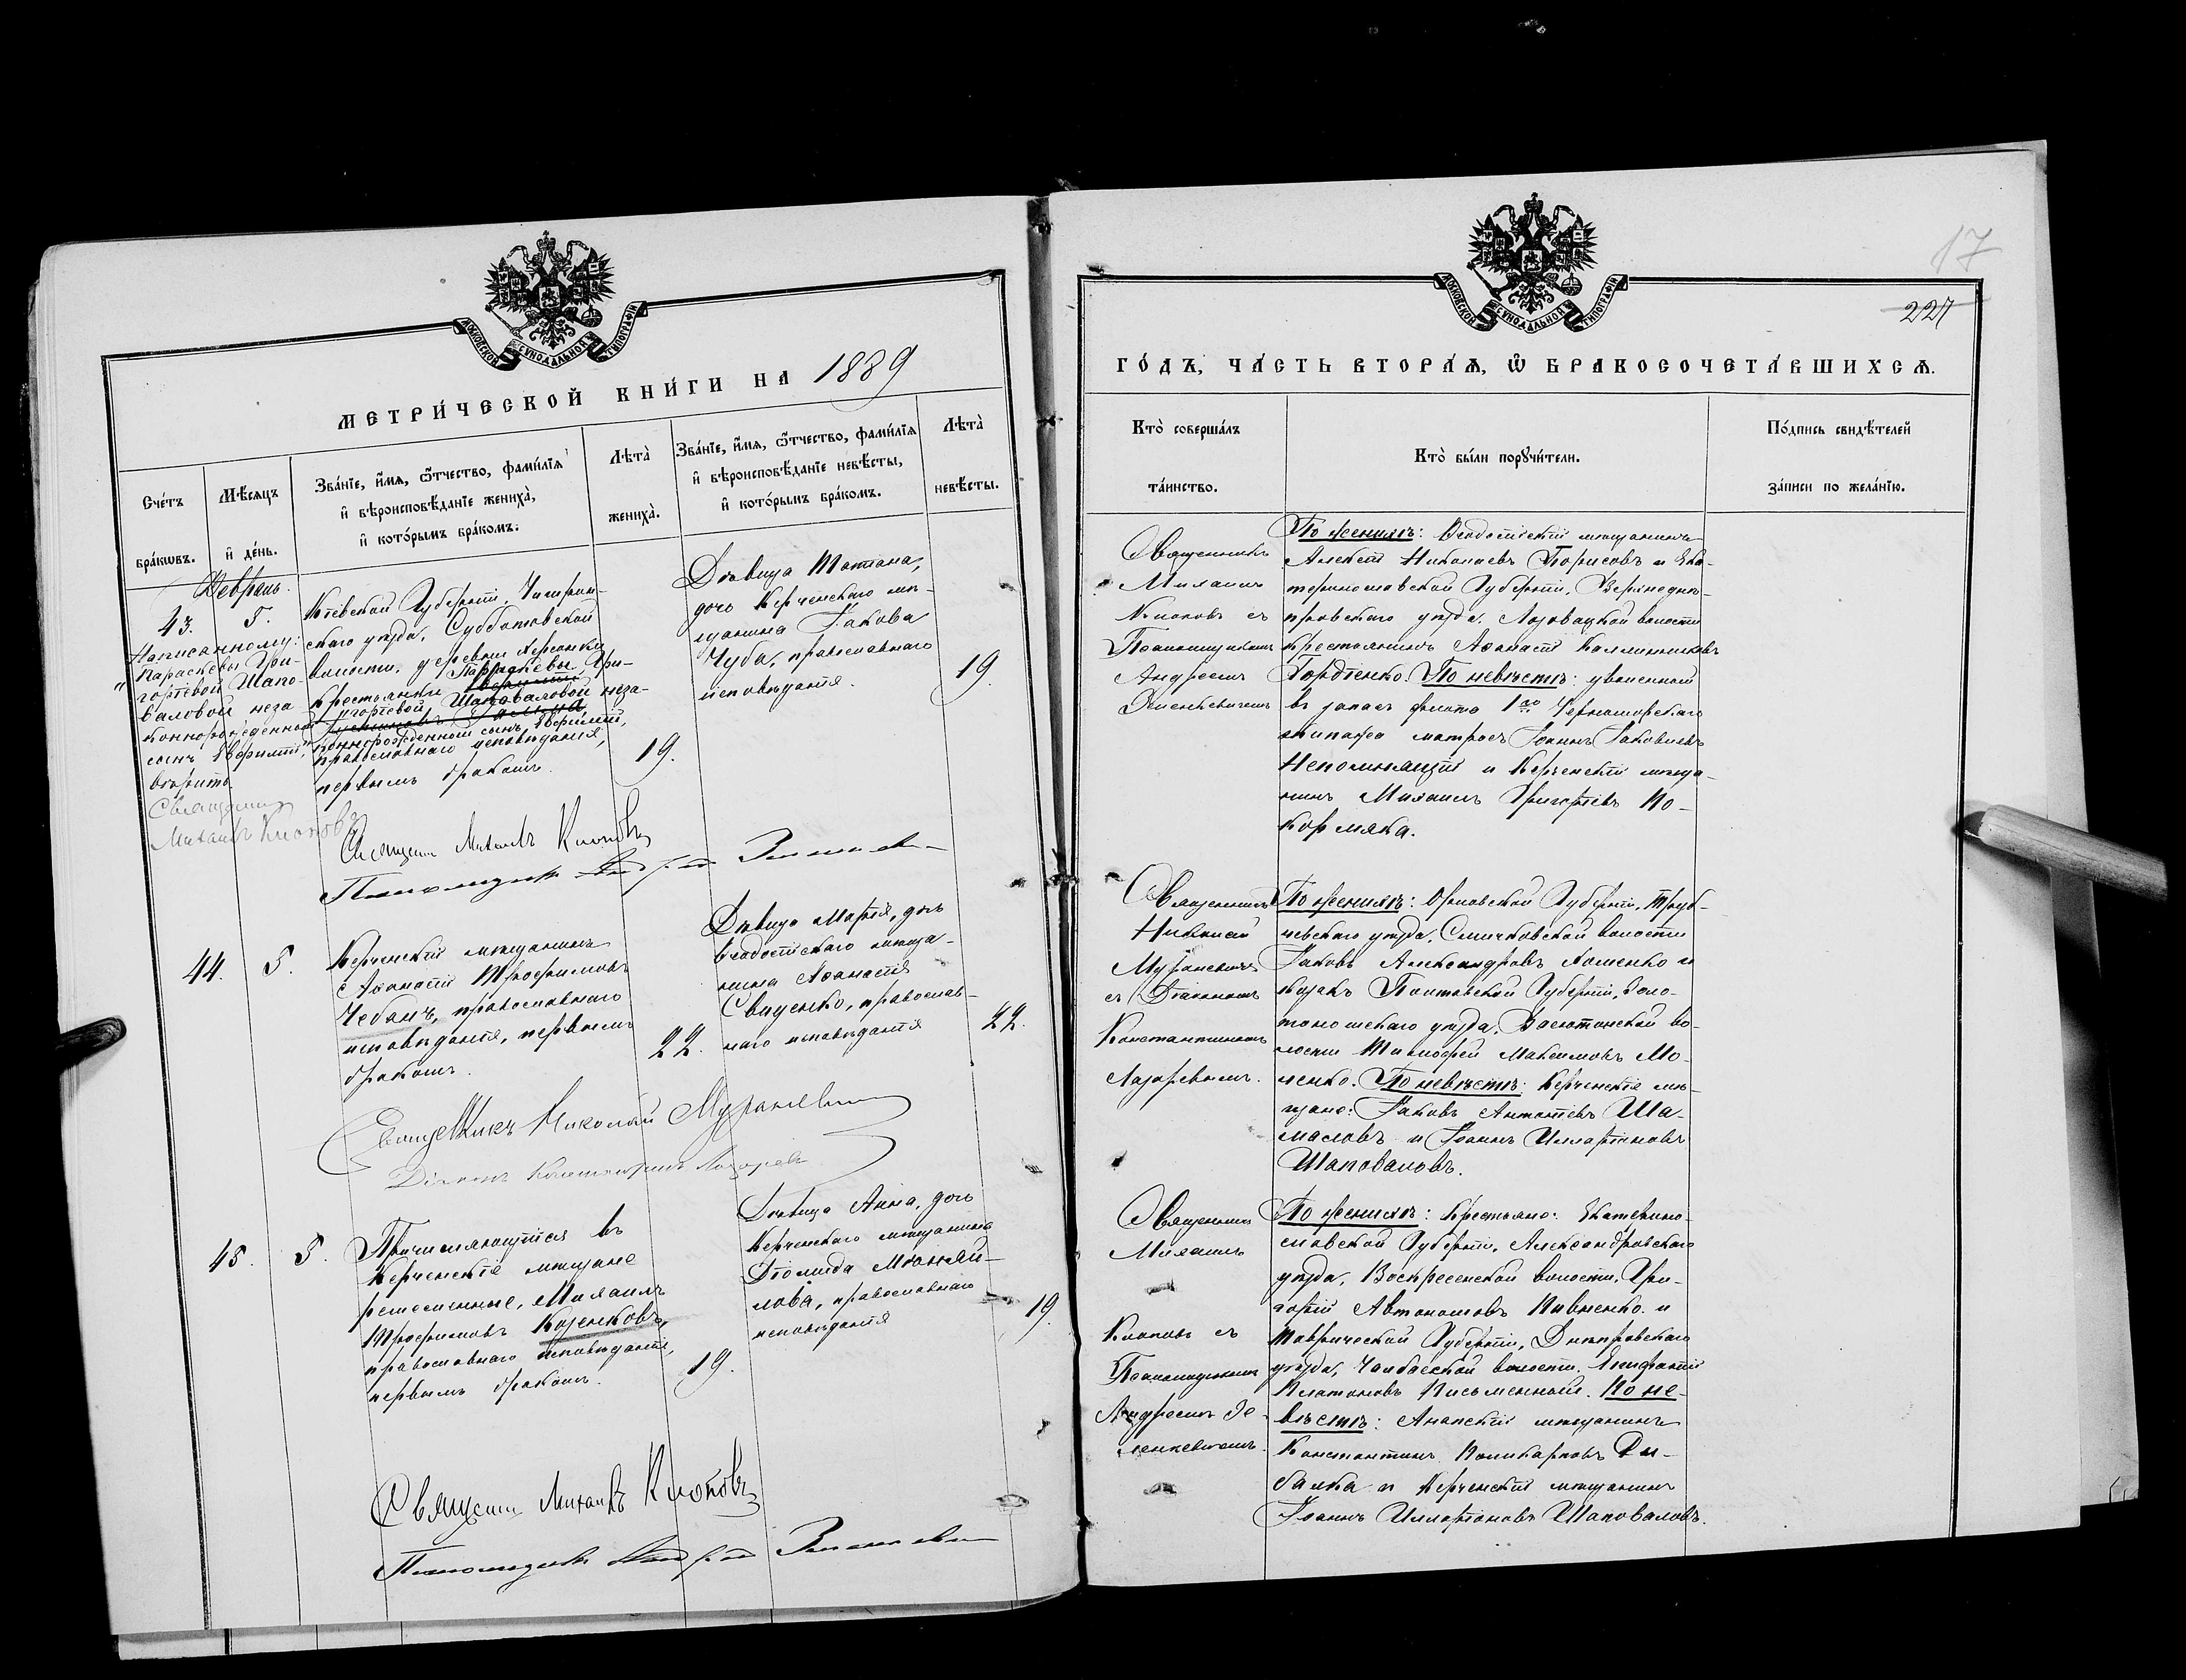 МОСКОВСКОЙ СУНОДАЛЬНОЙ ТИПОГРАФІИ
МЕТРИ́ЧЕСКОЙ КНИ́ГИ НА 1889
Сче́тъ бра́кѡвъ.
Мѣ́сяцъ и҆ де́нь.
Зва́нїе, и҆́мѧ, ѻ҆́тчество, фами́лїѧ
и҆ вѣроисповѣ́данїе жениха̀,
и҆ кото́рымъ бра́комъ.
Лѣта̀
жениха̀.
Зва́нїе, и҆́мѧ, ѻ҆́тчество, фами́лїѧ
и҆ вѣроисповѣ́данїе невѣ́сты,
и҆ кото́рымъ бра́комъ.
Лѣта̀
невѣ́сты.
Февраль.
43.
5.
Написанному:
"Параскевы Гри-
горіевой Шапо-
валовой неза-
коннорожденный
сынъ Евфимій",
вѣрить
Священникъ
Михаилъ Клюковъ
Кіевской Губерніи, Чигрин-
скаго уѣзда, Субботовской
волости, деревни Херсонки
крестьянки Параскевы Гри-
горіевой Шаповаловой неза-
коннорожденный сынъ Евфимій,
православнаго исповѣданія,
первымъ бракомъ.
19.
Дѣвица Татіана,
дочь Керченскаго мѣ-
щанина Іакова
Чуба, православнаго
исповѣданія.
19.
Священникъ Михаилъ Клюковъ
Псаломщикъ Андрей
44.
5.
Керченскій мѣщанинъ
Аѳанасій Трофимовъ
Чебанъ, православнаго
исповѣданія, первымъ
бракомъ.
22.
Дѣвица Марія, дочь
Ѳеодосійскаго мѣща-
нина Аѳанасія
Свиденко, православ-
наго исповѣданія
22.
Священникъ Николай Мураневичъ
Діаконъ Константинъ Лазаревъ
45.
5.
Причисляющійся въ
Керченскіе мѣщане
ремесленные, Михаилъ
Трофимовъ Козенковъ,
православнаго исповѣданія,
первымъ бракомъ.
19.
Дѣвица Анна, дочь
Керченскаго мѣщанина
православнаго
исповѣданія
19.
Священникъ Михаилъ Клюковъ
Псаломщикъ Андрей
17
227
МОСКОВСКОЙ СУНОДАЛЬНОЙ ТИПОГРАФІИ
ГО́ДЪ, ЧА́СТЬ ВТОРА́Ѧ, Ѡ҆ БРАКОСОЧЕТА́ВШИХСѦ.
Кто̀ соверша́лъ
та́инство.
Кто̀ бы́ли порꙋчи́тели.
По́дпись свидѣ́телей
за́писи по жела́нїю.
Священникъ
Михаилъ
Клюковъ съ
Псаломщикомъ
Андреемъ
Зеленкевичемъ
По женихѣ: Ѳеодосійскій мѣщанинъ
Алексій Николаевъ Борисовъ и Ека-
теринославской Губерніи, Верхнеднѣ-
провскаго уѣзда, Лозоватской волости
крестьянинъ Аѳанасій Каллинниковъ
Гордіенко. По невѣстѣ: уволенный
въ запасъ флота 1го Черноморскаго
экипажа матросъ Іоаннъ Іаковлевъ
Непомнящій и Керченскій мѣща-
нинъ Михаилъ Григоріевъ По-
кормяка.
Священникъ
Николай
Мураневичъ
съ Діакономъ
Константиномъ
Лазаревымъ.
По женихѣ: Орловской Губерніи, Труб-
чевскаго уѣзда, Смячковской волости
Іаковъ Александровъ Хоменко и
козакъ Полтавской Губерніи, Золо-
тоношскаго уѣзда, Васютинской во-
лости Тимофей Максимовъ Мо-
ленко. По невѣстѣ: Керченскіе мѣ-
щане: Іаковъ Антоніевъ Ша-
масловъ и Іоаннъ Илларіоновъ
Шаповаловъ.
Священникъ
Михаилъ
Клюковъ съ
Псаломщикомъ
Андреемъ Зе-
ленкевичемъ.
По женихѣ: Крестьяне: Екатерино-
славской Губерніи, Александровскаго
уѣзда, Воскресенской волости, Гри-
горій Автономовъ Пивненко и
Таврической Губерніи, Днѣпровскаго
уѣзда, Чалбасской волости, Епифаній
Платоновъ Письменный. По не-
вѣстѣ: Анапскій мѣщанинъ
Константинъ Поликарповъ Ры-
балка и Керченскій мѣщанинъ
Іоаннъ Илларіоновъ Шаповаловъ.